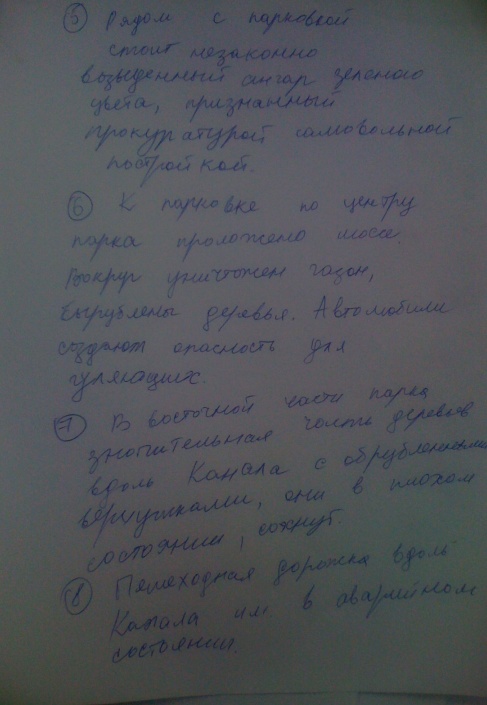 5 Рядом с парковкой
стоит незаконно
возведенный ангар зеленого
цвета, признанный
прокуратурой самовольной
постройкой.
6 К парковке по центру
парка проложено шоссе.
Вокруг уничтожен газон,
вырублены деревья. Автомобили
создают опасность для
гуляющих.
7 В восточной части парка
значительная часть деревьев
вдоль Канала с обрубленными
верхушками, они в плохом
состоянии, сохнут.
8 Пешеходная дорожка вдоль
Канала им. в аварийном
состоянии.